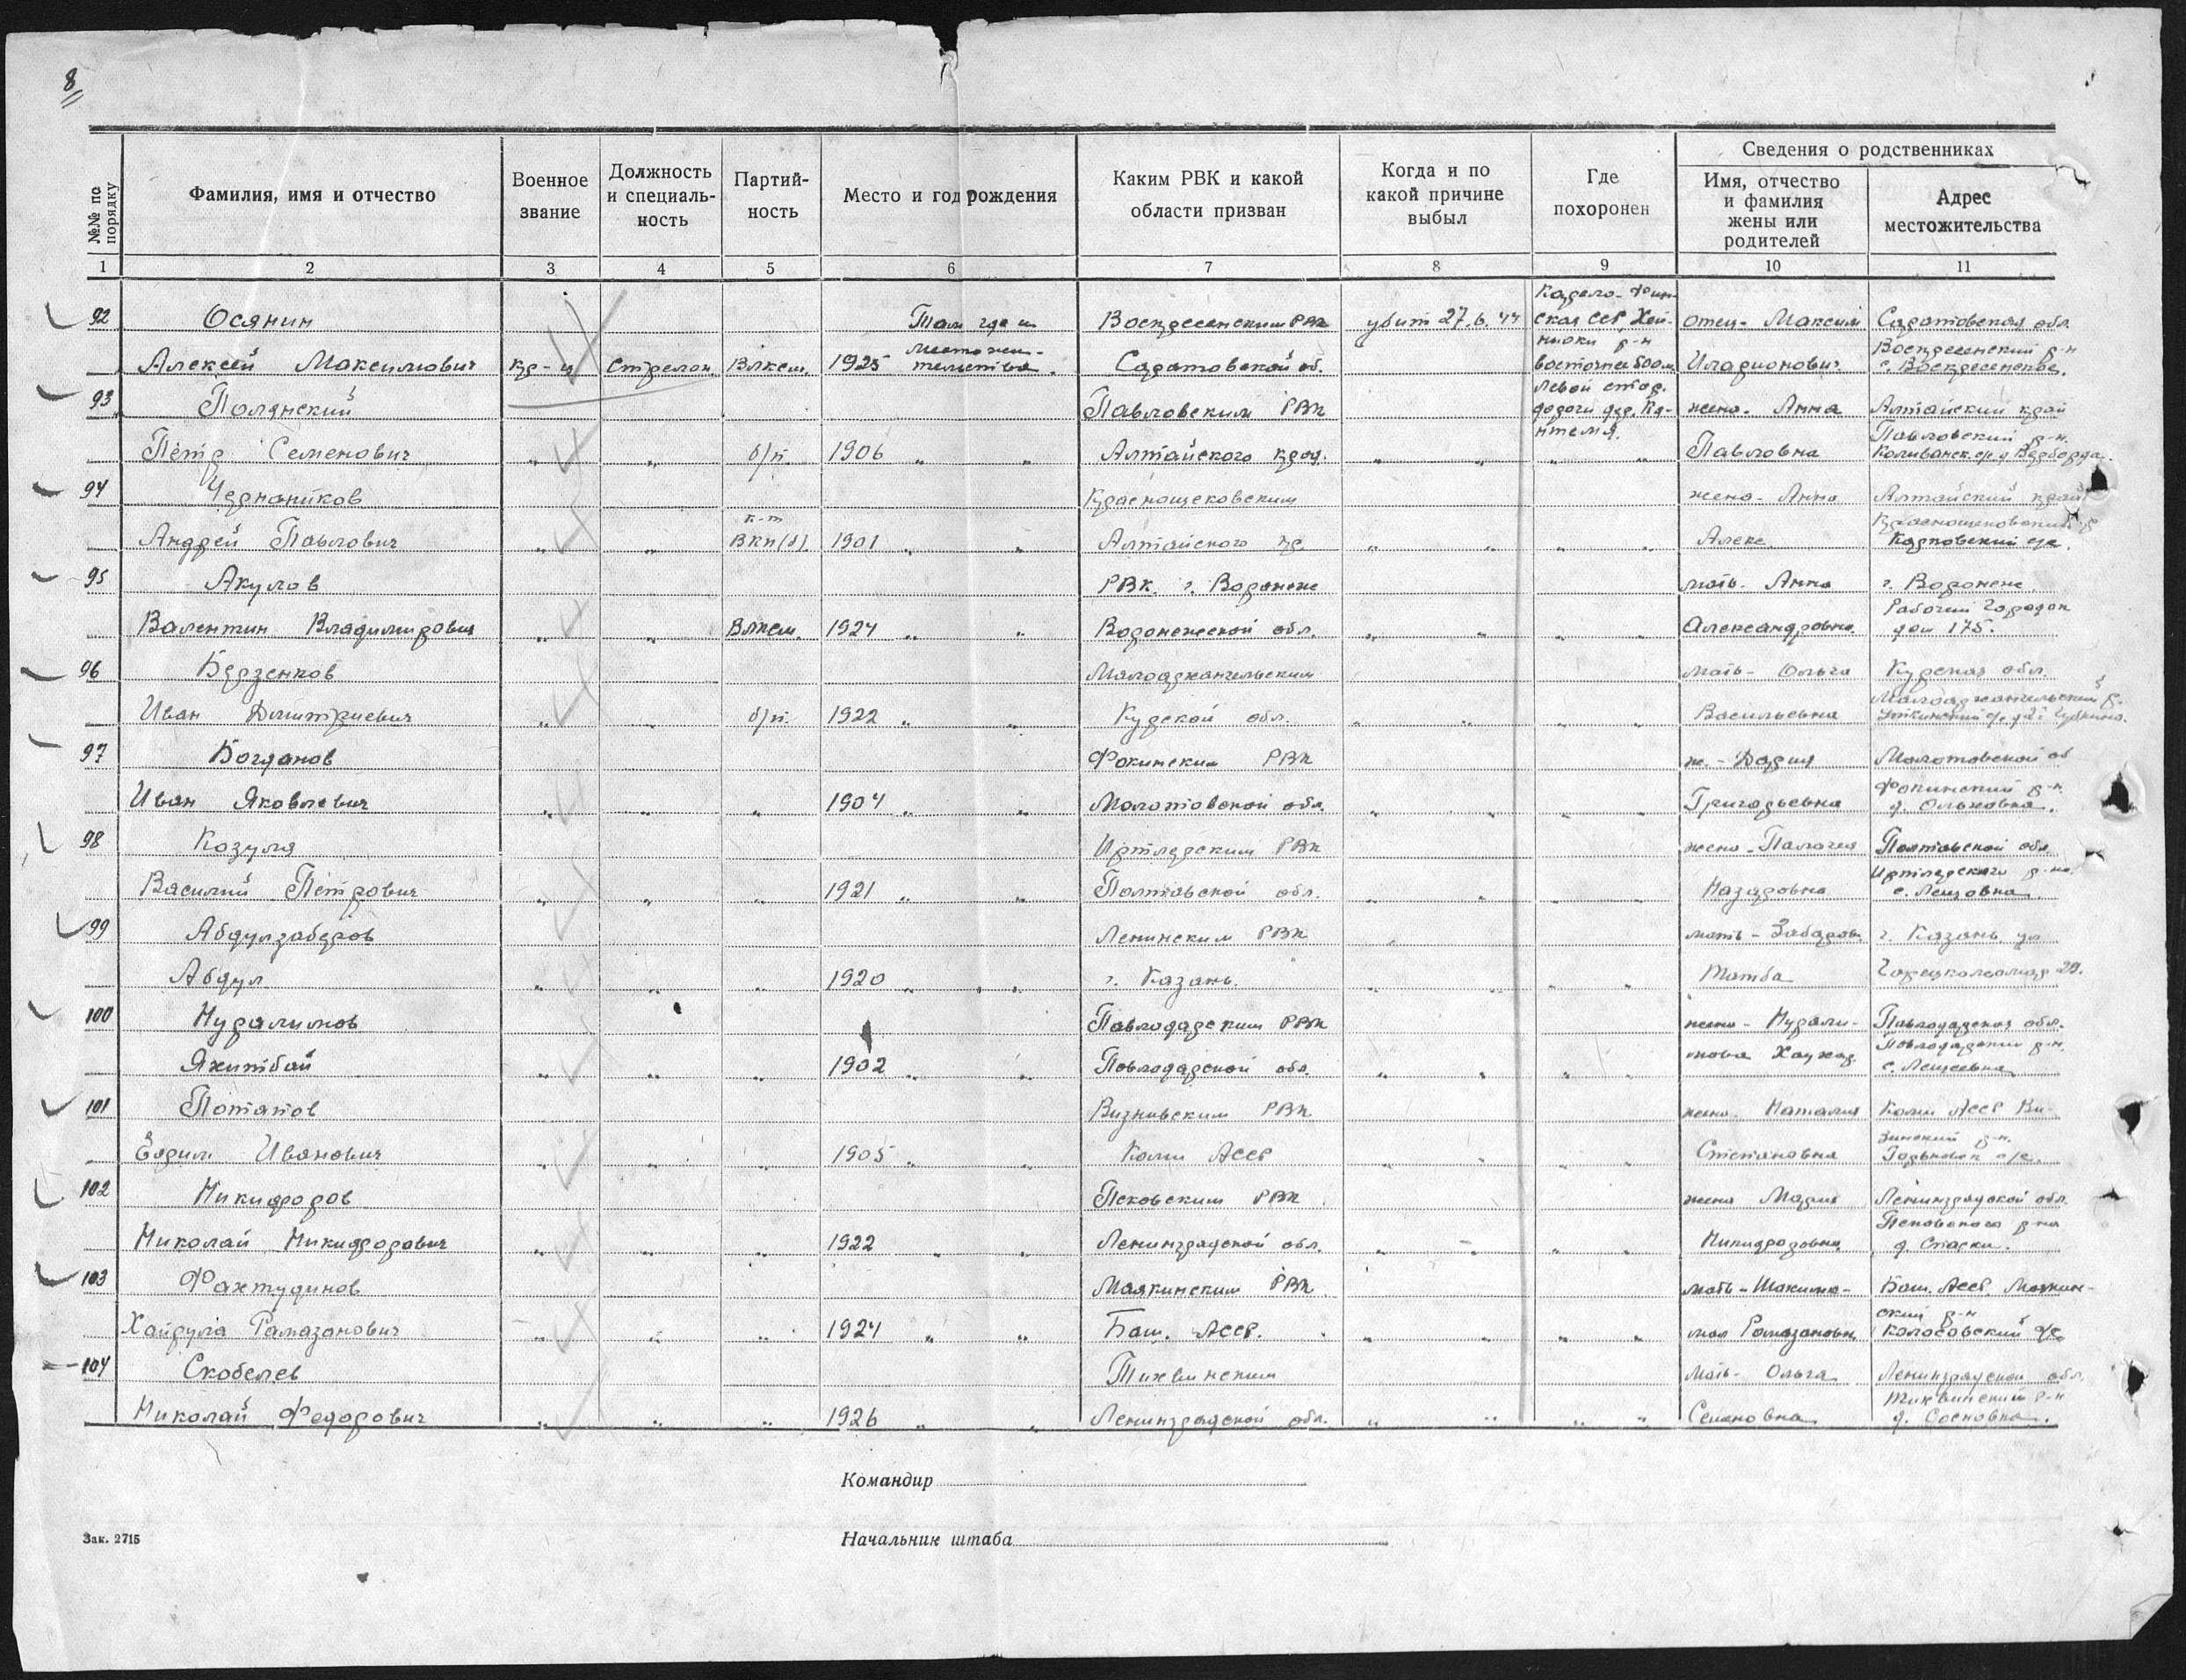 8
№№ по порядку
Фамилия, имя и отчество
Военное звание
Должность и специальность
Партийность
Место и год рождения
Каким РВК и какой области призван
Когда и по какой причине выбыл
Где похоронен
Сведения о родственниках
Имя, отчество и фамилия жены или родителей
Адрес местожительства
1 2 3 4 5 6 7 8 9 10 11
92 Осянин Там где и Воскресенским РВК убит 27.6.44 Карело-Фин- отец - Максим Саратовская обл.
место жи- ская ССР, Воскресенский р-н
Алексей Максимович кр-ц стрелок Влксм. 1925 тельства. Саратовской об. Иларионович с. Воскресенское.
93 Полянский Павловским РВК левой стор. дороги дер. жена - Анна Алтайский край
Павловский р-н.
Пётр Семенович " " б/п. 1906 " " Алтайского края. " " " " Павловна
94 Чердаников Краснощековским жена - Анна Алтайский край
к-т Краснощековский р
Андрей Павлович " " ВКП(б). 1901 " " Алтайского кр. " " " " Алекс. Карповский с/с.
95 Акулов РВК. г. Воронеж мать - Анна г. Воронеж
Рабочий Городок
Валентин Владимирович " " Влксм. 1924 " " Воронежской обл. " " " " Александровна. дом 175.
96 Берзенков Малоархангельским мать - Ольга Курская обл.
Малоархангельский р-
Иван Дмитриевич " " б/п. 1922 " " Курской обл. " " " " Васильевна
97 Богданов Фокинским РВК ж. - Дария Молотовской об
Фокинский р-н.
Иван Яковлевич " " " 1904 " " Молотовской обл. " " " " Григорьевна д. Ольховка.
98 Козуля Иртлярским РВК жена - Палагея Полтавской обл
Иртлярского р-на.
Василий Петрович " " " 1921 " " Полтавской обл. " " " " Назаровна
99 Абдулзаберов Ленинским РВК мать - Забаров. г. Казань ул
Абдул " " " 1920 " " г. Казань. " " " " Татба 29.
100 Нуралинов Павлодарским РВК жена - Нурали- Павлодарская обл.
Павлодарский р-н.
Яхитбай " " " 1902 " " Павлодарской обл. " " " " нова
101 Потапов Визинвским РВК жена - Наталия Коми АССР Ви-
зинский р-н.
Ёарим Иванович " " " 1905 " " Коми АССР " " " " Степановна
102 Никифоров Псковским РВК. жена Мария Ленинградской обл.
Псковского р-на
Николай Никифорович " " " 1922 " " Ленинградской обл. " " " " Никифоровна д. Спаски.
103 Фахтудинов Маякинским РВК. мать - Шакима- Баш. АССР. Маякин-
ский р-н
Хайрула Рамазанович " " " 1924 " " Баш. АССР. " " " " мал Рамазановн. Колосовский с/с.
104 Скобелев Тихвинским мать - Ольга Ленинградской обл.
Тихвинский р-н
Николай Федорович " " " 1926 " " Ленинградской обл. " " " " Семеновна д. Сосновка.
Командир
Зак. 2715
Начальник штаба